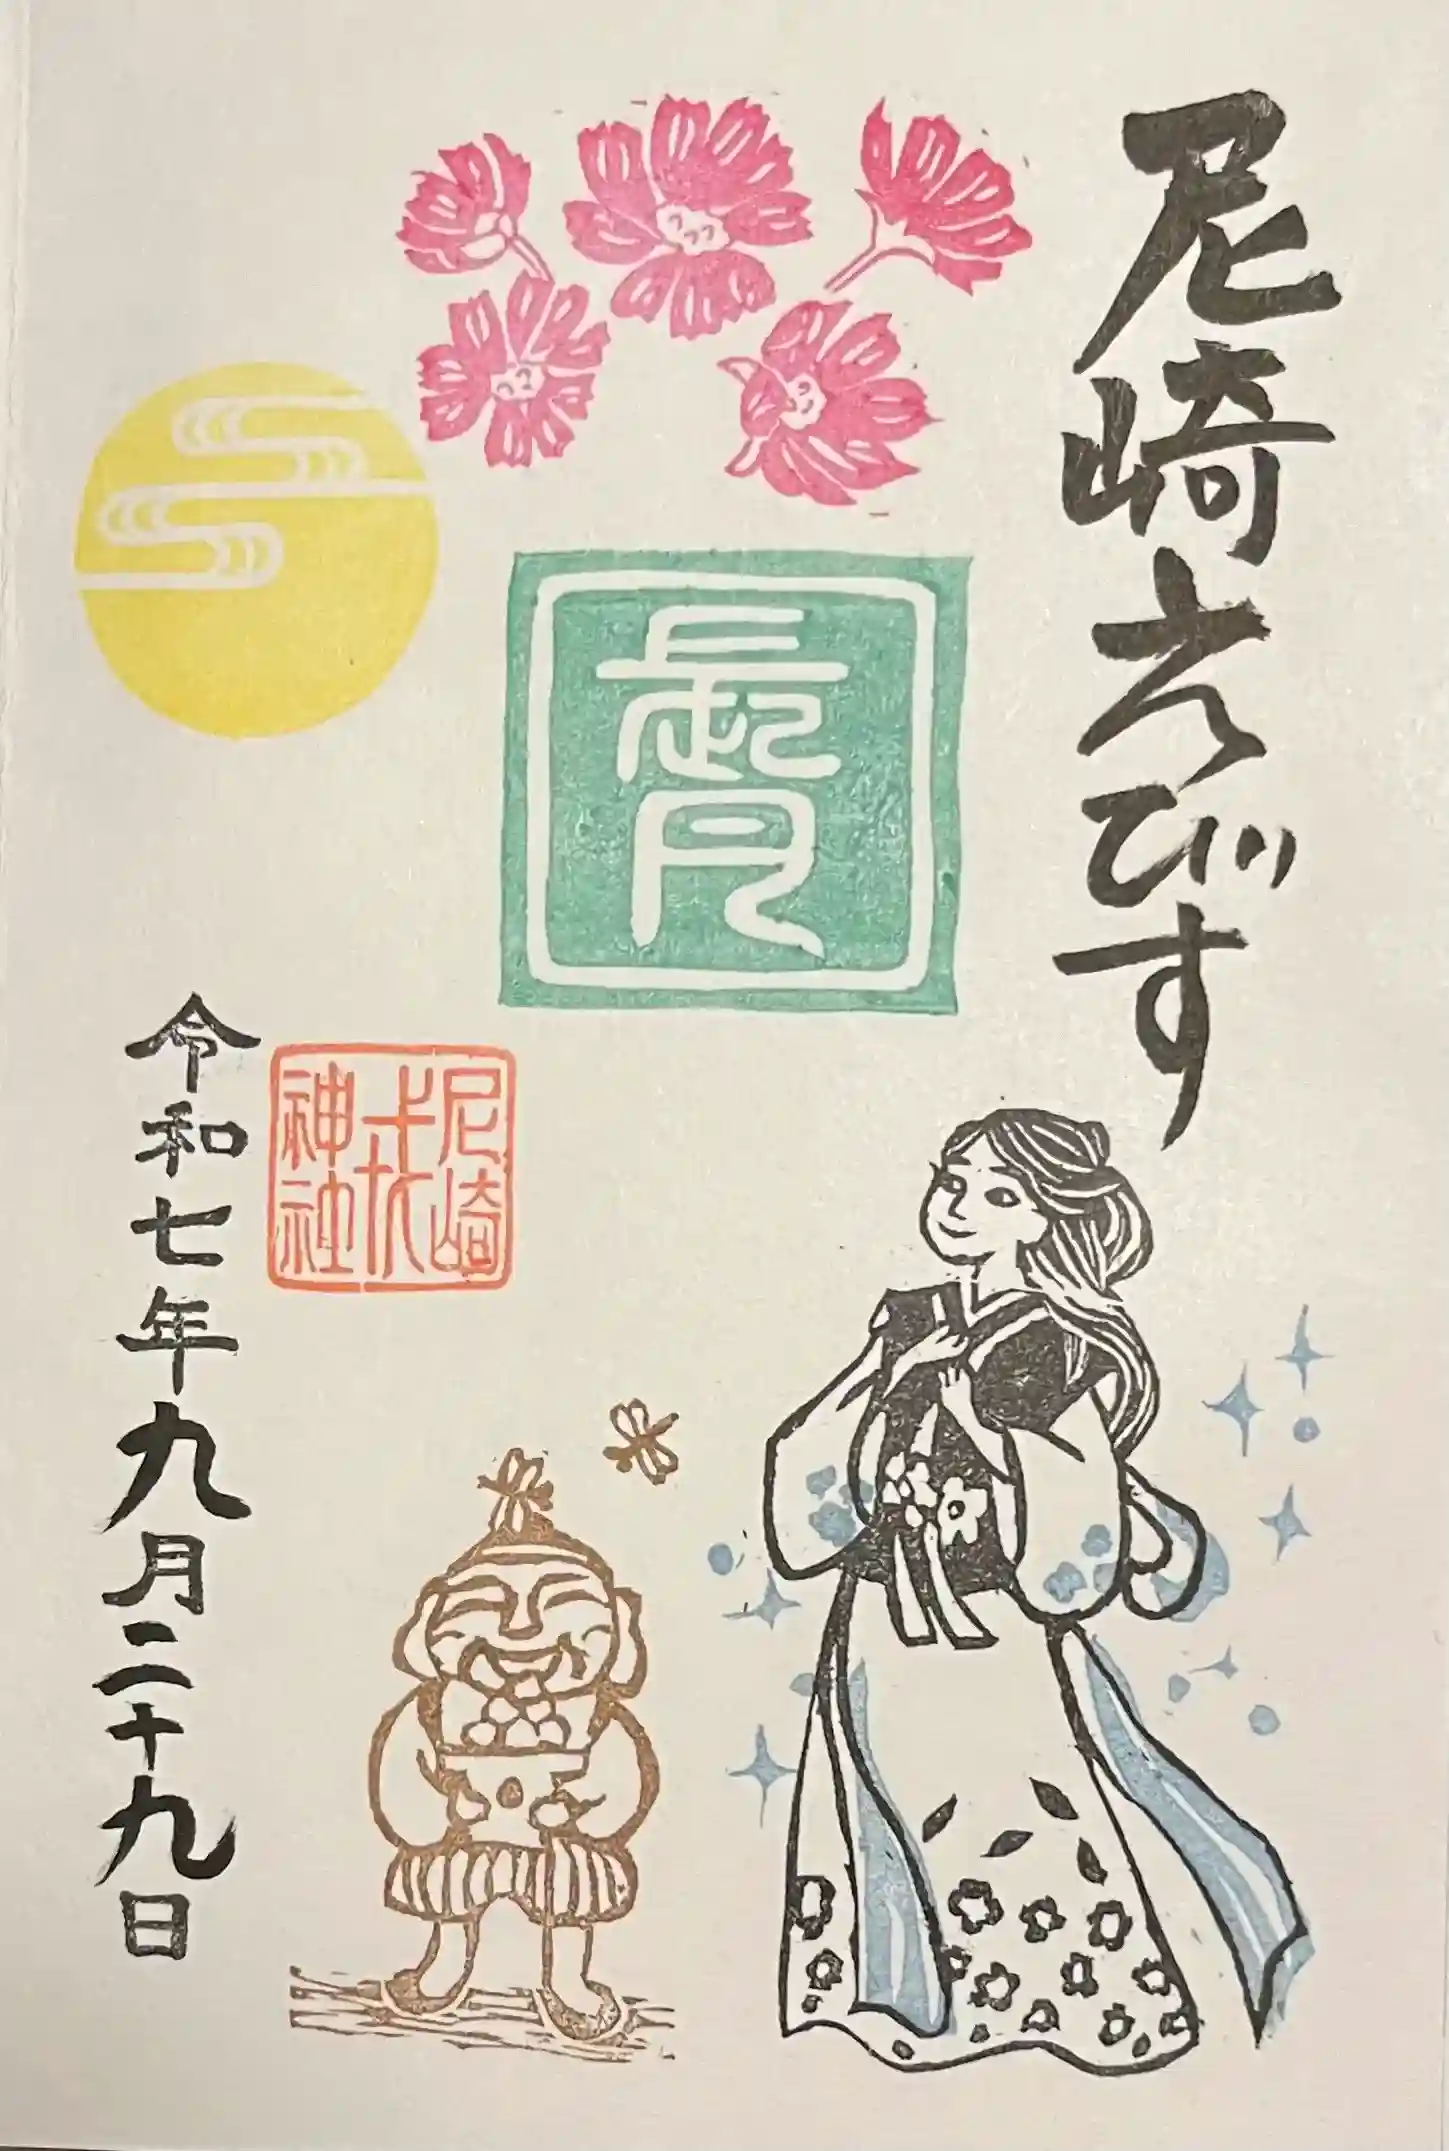 尼崎えびす
長月
尼崎
戎
神社
令和七年九月二十九日